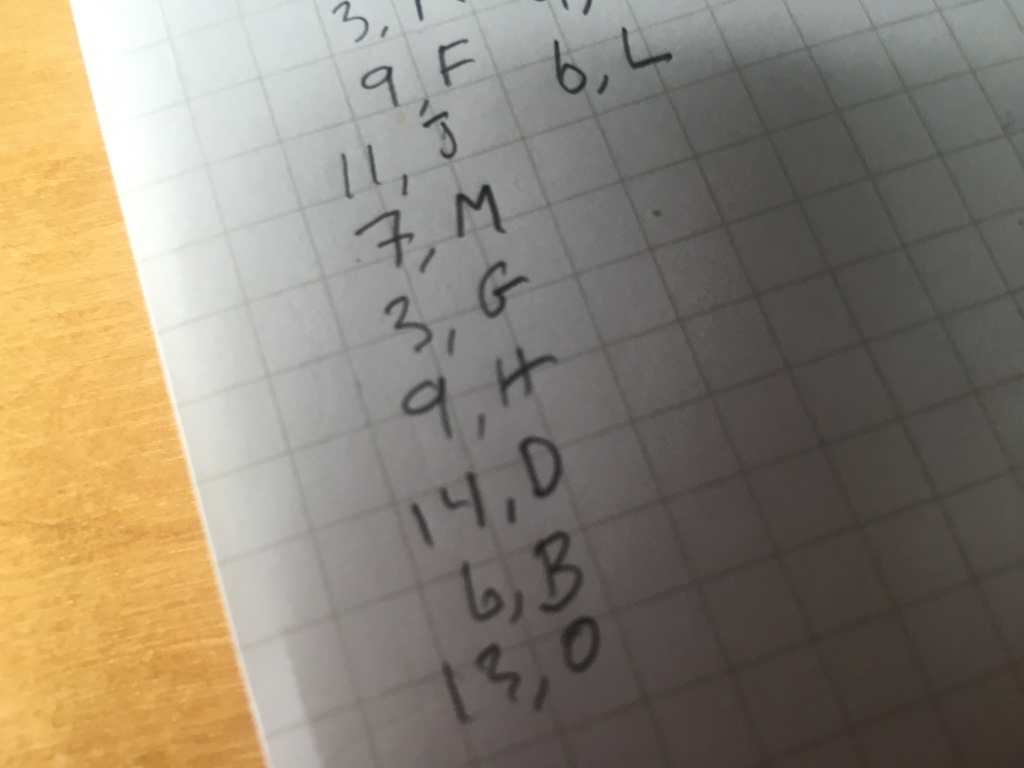 3,
9, F 6, L
11, J
7, M
3, G
9, H
14, D
6, B
13, O